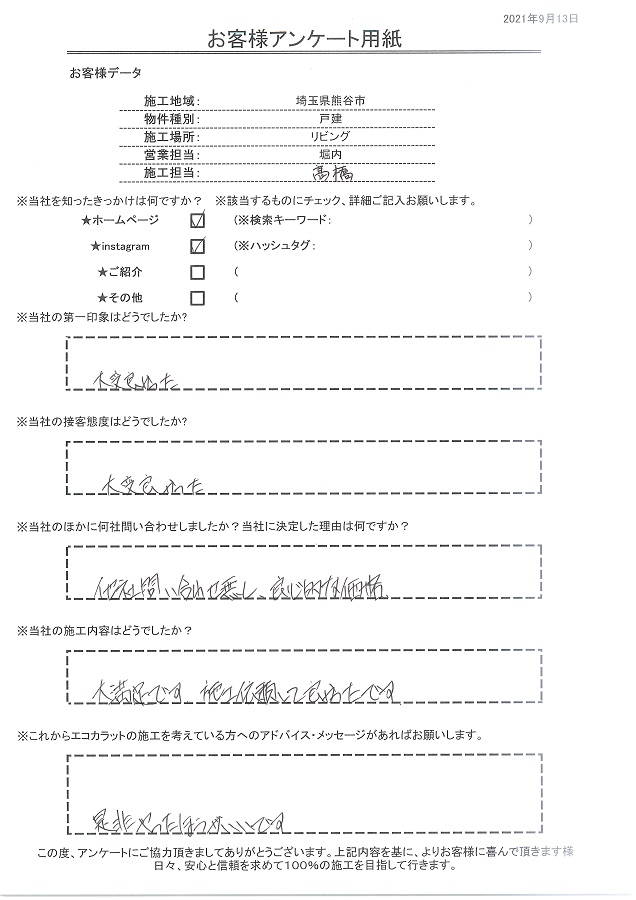 2021年9月13日
お客様アンケート用紙
お客様データ
施工地域： 埼玉県熊谷市
物件種別： 戸建
施工場所： リビング
営業担当： 堀内
施工担当： 髙橋
※当社を知ったきっかけは何ですか？ ※該当するものにチェック、詳細ご記入お願いします。
★ホームページ ☑ （※検索キーワード： ）
★instagram ☑ （※ハッシュタグ： ）
★ご紹介 □ （ ）
★その他 □ （ ）
※当社の第一印象はどうでしたか?
大変良かった
※当社の接客態度はどうでしたか?
大変良かった
※当社のほかに何社問い合わせしましたか？当社に決定した理由は何ですか？
他社問い合わせ無し、良心的な価格
※当社の施工内容はどうでしたか？
大満足です 施工依頼して良かったです
※これからエコカラットの施工を考えている方へのアドバイス・メッセージがあればお願いします。
是非やったほうがいいです
この度、アンケートにご協力頂きましてありがとうございます。上記内容を基に、よりお客様に喜んで頂きます様
日々、安心と信頼を求めて100%の施工を目指して行きます。